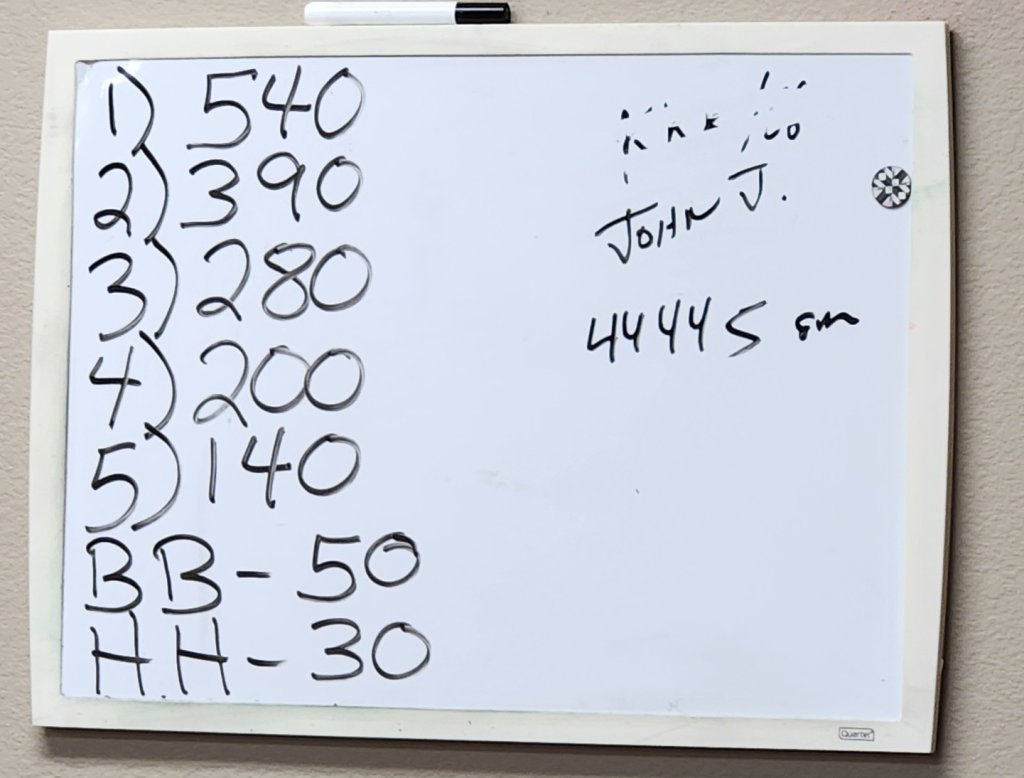 1) 540
2) 390
3) 280
4) 200
5) 140
BB - 50
HH - 30
JOHN J.
44445 sm
Quartet